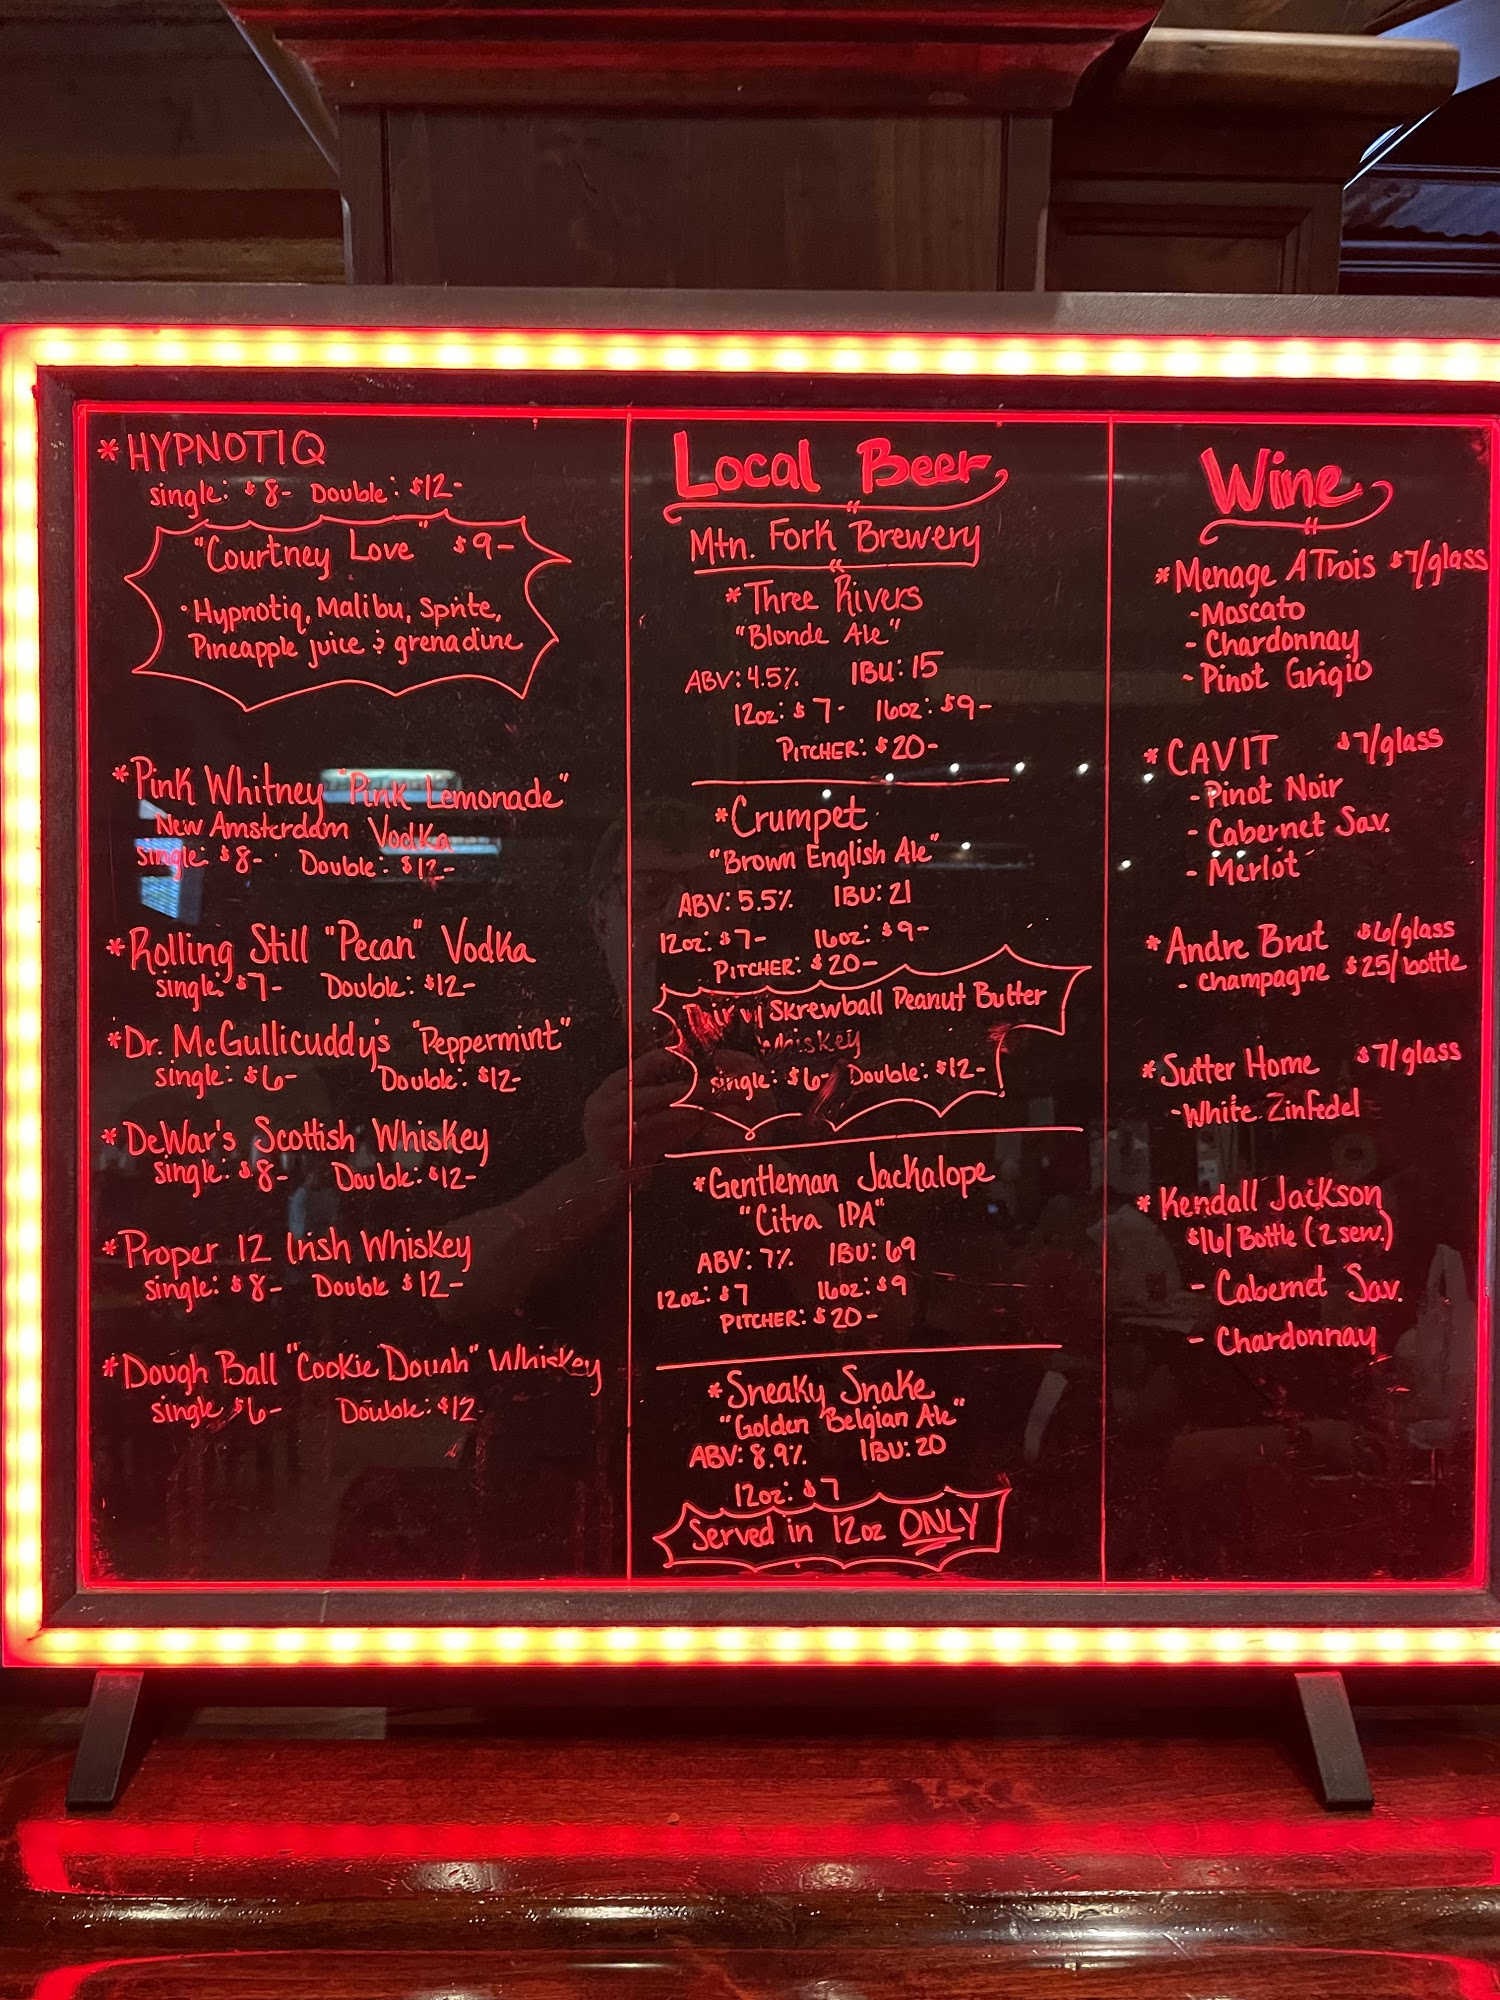 *HYPNOTIQ
single: $8- Double: $12-
"Courtney Love" $9-
·Hypnotiq, Malibu, Sprite,
Pineapple juice & grenadine
*Pink Whitney "Pink Lemonade"
New Amsterdam Vodka
single: $8- Double: $12-
*Rolling Still "Pecan" Vodka
single: $7- Double: $12-
*Dr. McGullicuddy's "Peppermint"
single: $6- Double: $12-
*DeWar's Scottish Whiskey
single: $8- Double: $12-
*Proper 12 Irish Whiskey
single: $8- Double $12-
*Dough Ball "Cookie Dough" Whiskey
single $6- Double: $12
Local Beer
Mtn. Fork Brewery
*Three Rivers
"Blonde Ale"
ABV: 4.5% IBU: 15
12oz: $7- 16oz: $9-
PITCHER: $20-
*Crumpet
"Brown English Ale"
ABV: 5.5% IBU: 21
12oz: $7- 16oz: $9-
PITCHER: $20-
w/ Skrewball Peanut Butter
Whiskey
single: $6- Double: $12-
*Gentleman Jackalope
"Citra IPA"
ABV: 7% IBU: 69
12oz: $7 16oz: $9
PITCHER: $20-
*Sneaky Snake
"Golden Belgian Ale"
ABV: 8.9% IBU: 20
12oz: $7
Served in 12oz ONLY
Wine
*Menage A Trois $7/glass
-Moscato
- Chardonnay
- Pinot Grigio
*CAVIT $7/glass
- Pinot Noir
- Cabernet Sav.
- Merlot
*Andre Brut $6/glass
- Champagne $25/bottle
*Sutter Home $7/glass
-White Zinfedel
*Kendall Jackson
$16/Bottle (2 serv.)
- Cabernet Sav.
- Chardonnay